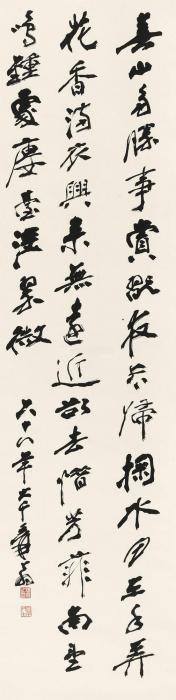 春山多勝事賞翫夜忘歸掬水月在手弄
花香滿衣興來無遠近欲去惜芳菲南望
鳴鐘處樓臺深翠微
六十八年大千爰翁